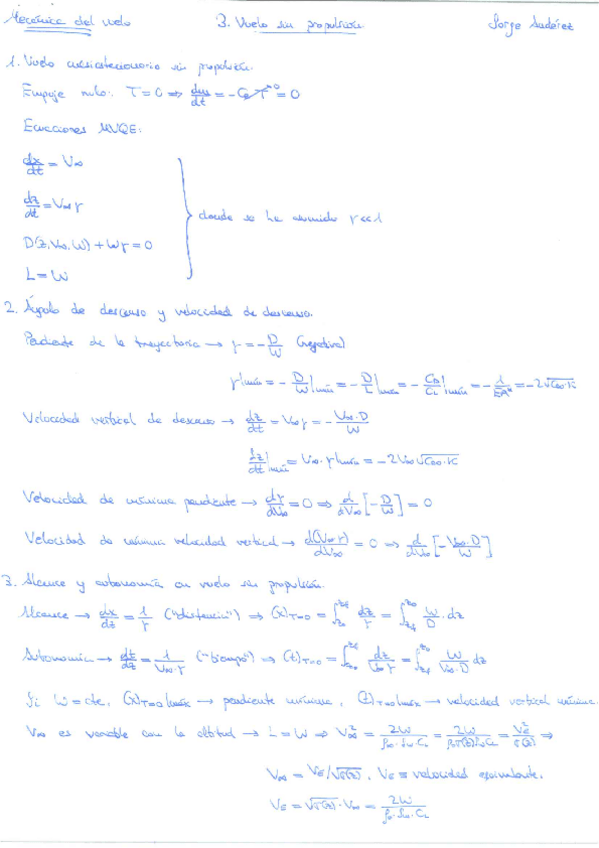 Mecánica del vuelo 3. Vuelo sin propulsión Jorge
1. Vuelo cuasiestacionario sin propulsión.
Empuje nulo: T=0 ⇒ dm/dt = -C_E T = 0
Ecuaciones MVQE:
dx/dt = V∞
dz/dt = V∞ γ
donde se ha asumido γ<<1
D(z,V∞,W) + Wγ = 0
L = W
2. Ángulo de descenso y velocidad de descenso.
Pendiente de la trayectoria → γ = -D/W (negativa)
γ|mín = -D/W|mín = -D/L|mín = -C_D/C_L|mín = -1/E_M = -2√(C_D0·K)
Velocidad vertical de descenso → dz/dt = V∞γ = -V∞·D/W
dz/dt|mín = V∞·γ|mín = -2V∞√(C_D0·K)
Velocidad de mínima pendiente → dγ/dV∞ = 0 ⇒ d/dV∞[-D/W] = 0
Velocidad de mínima velocidad vertical → d(V∞γ)/dV∞ = 0 ⇒ d/dV∞[-V∞·D/W]
3. Alcance y autonomía en vuelo sin propulsión.
Alcance → dx/dz = 1/γ ("distancia") ⇒ (x)T=0 = ∫ dz/γ = ∫ W/D · dz
Autonomía → dt/dz = 1/(V∞·γ) ("tiempo") ⇒ (t)T=0 = ∫ dz/(V∞γ) = ∫ W/(V∞·D) dz
Si W=cte, (x)T=0|máx → pendiente mínima, (t)T=0|máx → velocidad vertical mínima.
V∞ es variable con la altitud → L=W ⇒ V∞² = 2W/(ρ∞·S∞·C_L) = 2W/(ρ₀σ(z)S∞C_L) = V_E²/σ(z) ⇒
V∞ = V_E/√σ(z), V_E ≡ velocidad equivalente.
V_E = √σ(z)·V∞ = 2W/(ρ₀·S∞·C_L)